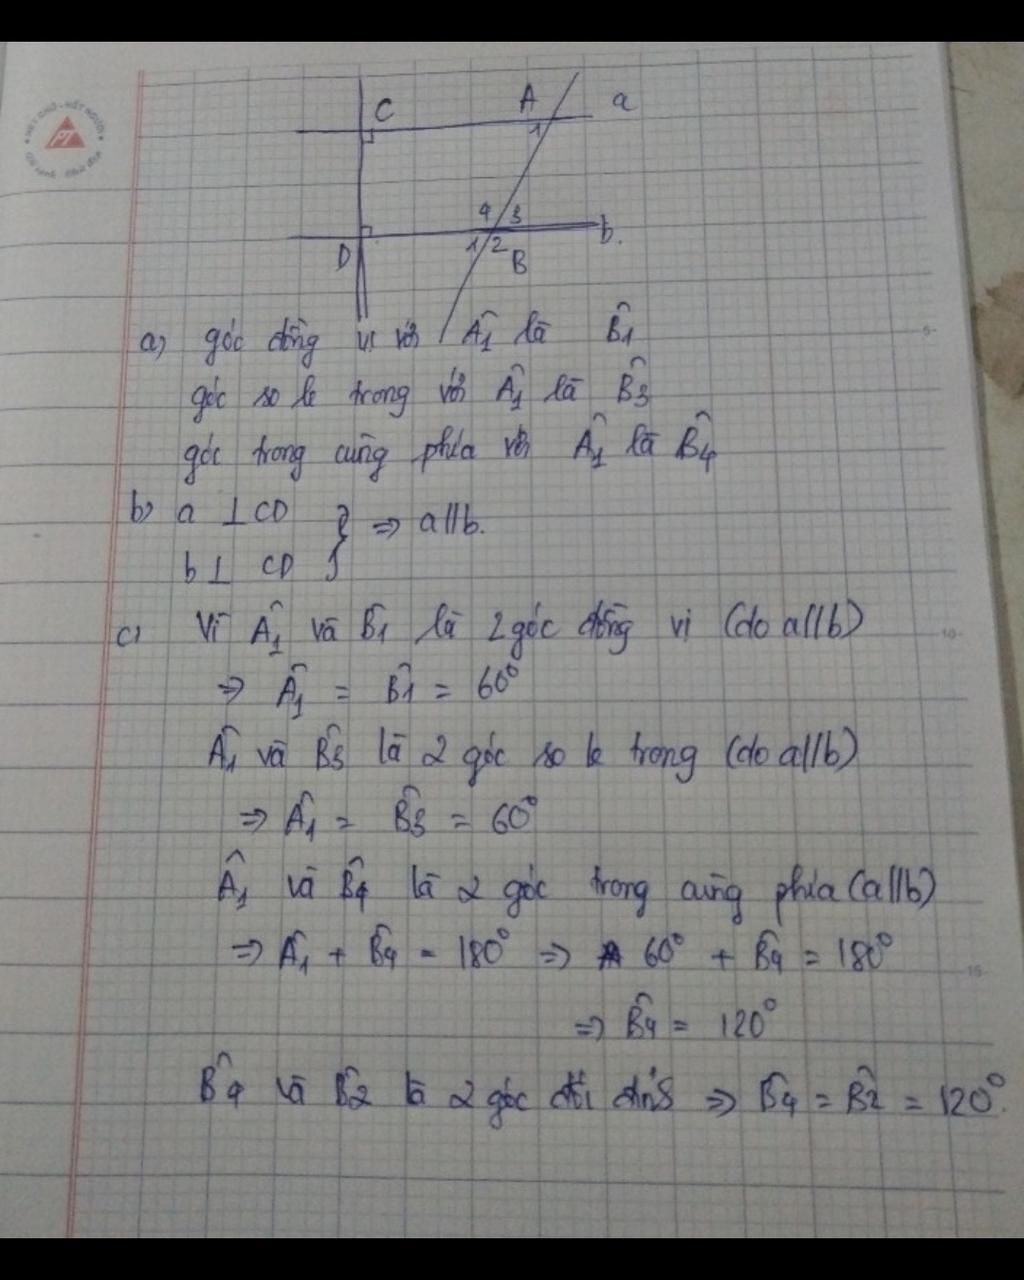 C A a
1
4 3
b.
D 1 2 B
a) góc đồng vị với Â1 là B̂1
góc so le trong với Â1 là B̂3
góc trong cùng phía với Â1 là B̂4
b) a ⊥ CD } => a//b.
b ⊥ CD
c) Vì Â1 và B̂1 là 2 góc đồng vị (do a//b)
=> Â1 = B̂1 = 60°
Â1 và B̂3 là 2 góc so le trong (do a//b)
=> Â1 = B̂3 = 60°
Â1 và B̂4 là 2 góc trong cùng phía (a//b)
=> Â1 + B̂4 = 180° => 60° + B̂4 = 180°
=> B̂4 = 120°
B̂4 và B̂2 là 2 góc đối đỉnh => B̂4 = B̂2 = 120°.
PT
5
10
15